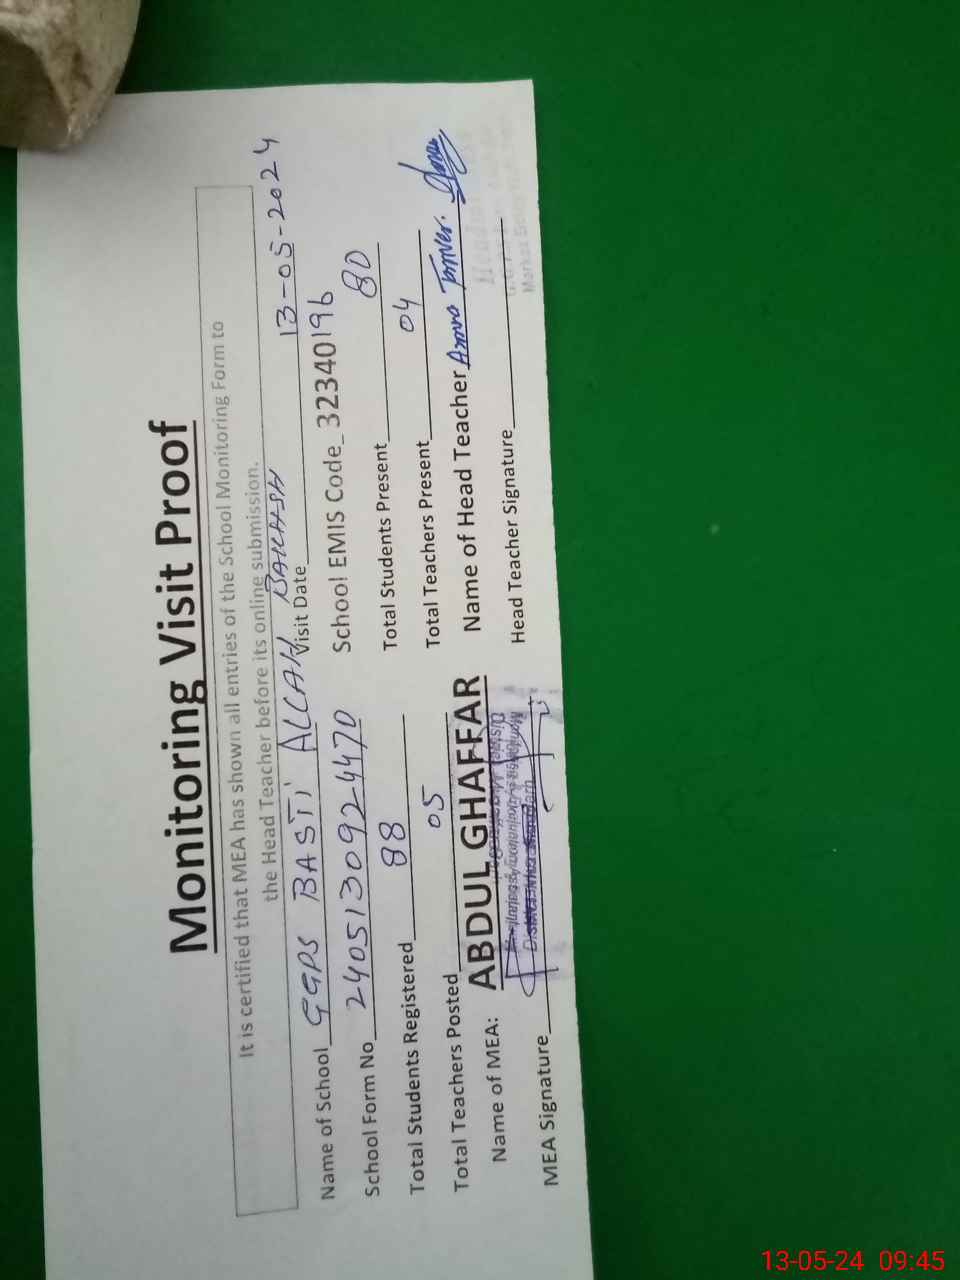 Monitoring Visit Proof
It is certified that MEA has shown all entries of the School Monitoring Form to
the Head Teacher before its online submission.
Name of School GGPS BASTI ALLAH BAKHSH
Visit Date 13-05-2024
School Form No 2405130924470
School EMIS Code 32340196
Total Students Registered 88
Total Students Present 80
Total Teachers Posted 05
Total Teachers Present 04
Name of MEA: ABDUL GHAFFAR
Name of Head Teacher
MEA Signature
Head Teacher Signature
13-05-24 09:45